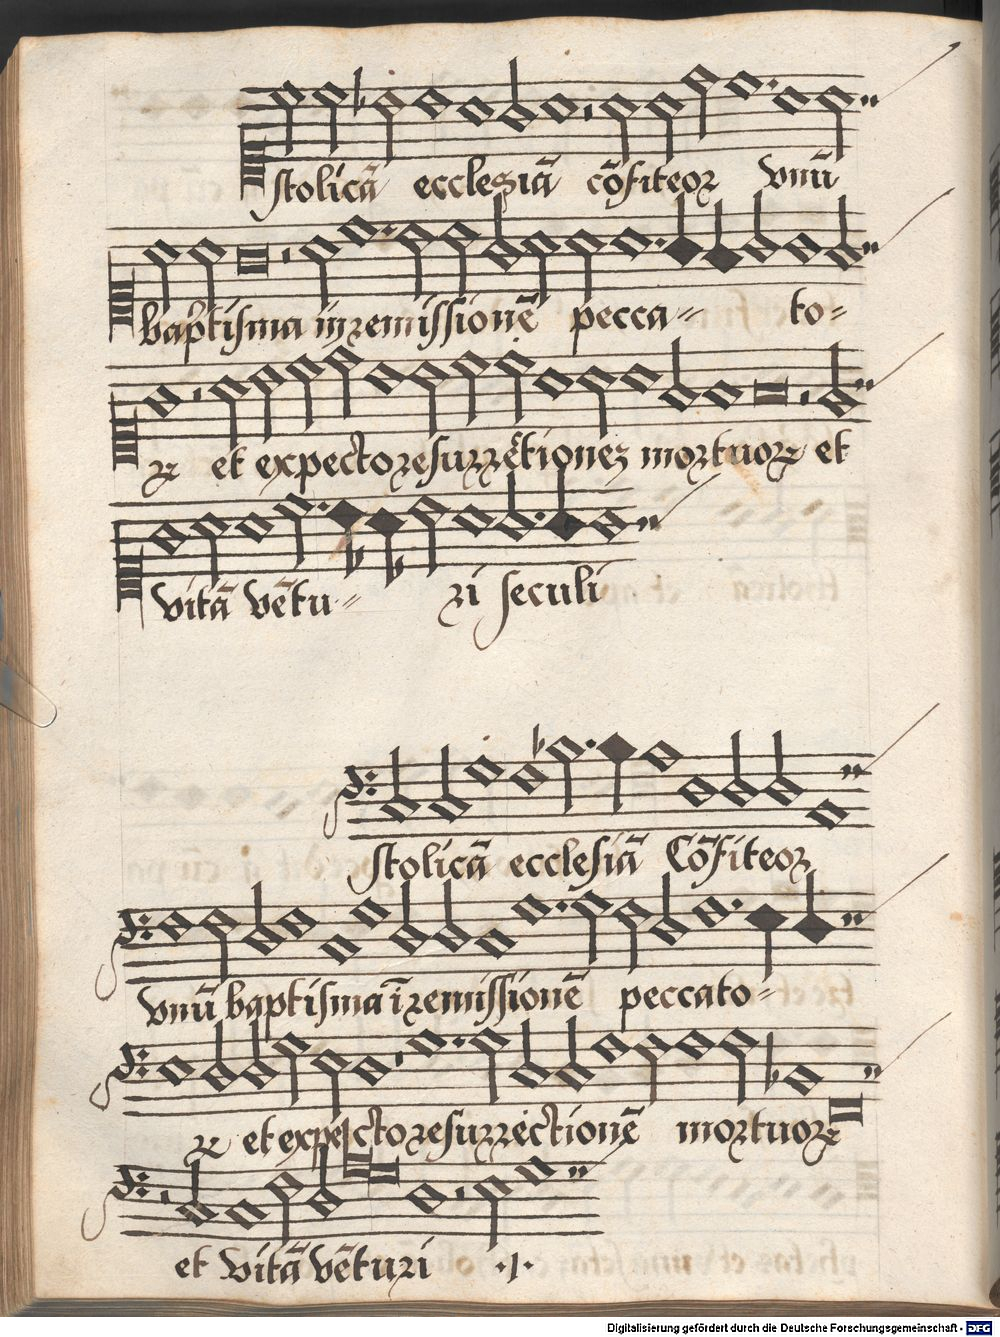 stolicā ecclesiā cōfiteor vnū
baptisma in remissionē pecca- to-
rꝝ et expecto resurrectionez mortuorꝝ et
vitā vētu- ri seculi
stolicā ecclesiā Cōfiteor
vnū baptisma ī remissionē peccato-
rꝝ et expecto resurrectionē mortuorꝝ
et vitā vēturi ·1·
Digitalisierung gefördert durch die Deutsche Forschungsgemeinschaft - DFG